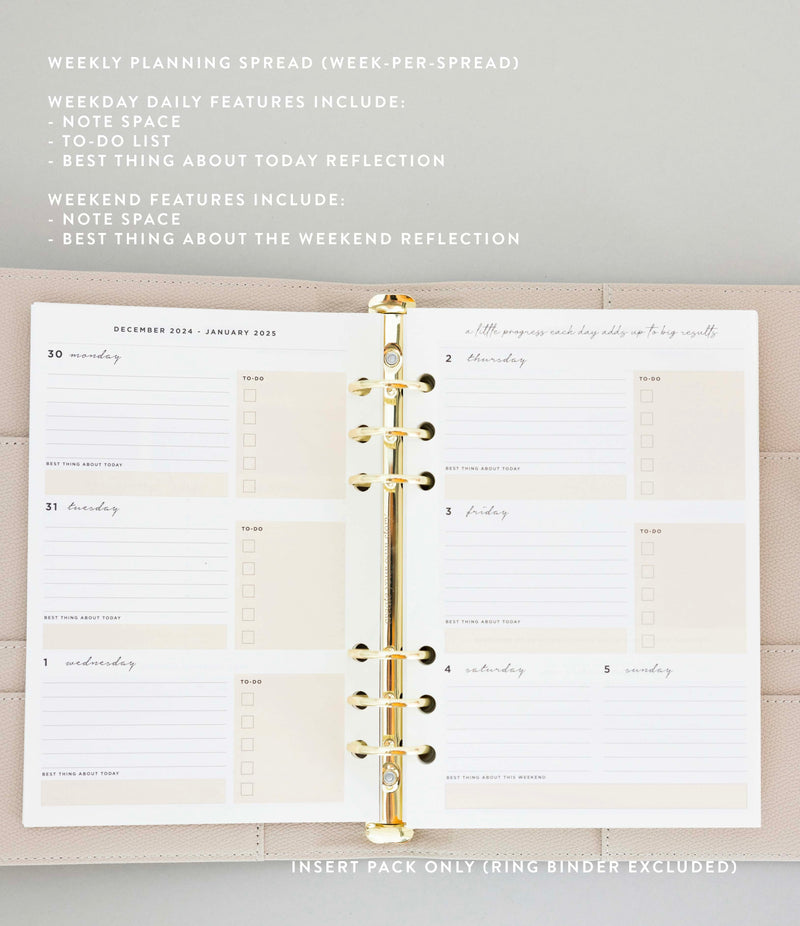 WEEKLY PLANNING SPREAD (WEEK-PER-SPREAD)
WEEKDAY DAILY FEATURES INCLUDE:
- NOTE SPACE
- TO-DO LIST
- BEST THING ABOUT TODAY REFLECTION
WEEKEND FEATURES INCLUDE:
- NOTE SPACE
- BEST THING ABOUT THE WEEKEND REFLECTION
DECEMBER 2024 - JANUARY 2025
30 monday
TO-DO
BEST THING ABOUT TODAY
31 tuesday
TO-DO
BEST THING ABOUT TODAY
1 wednesday
TO-DO
BEST THING ABOUT TODAY
a little progress each day adds up to big results
2 thursday
TO-DO
BEST THING ABOUT TODAY
3 friday
TO-DO
BEST THING ABOUT TODAY
4 saturday
5 sunday
BEST THING ABOUT THIS WEEKEND
INSERT PACK ONLY (RING BINDER EXCLUDED)